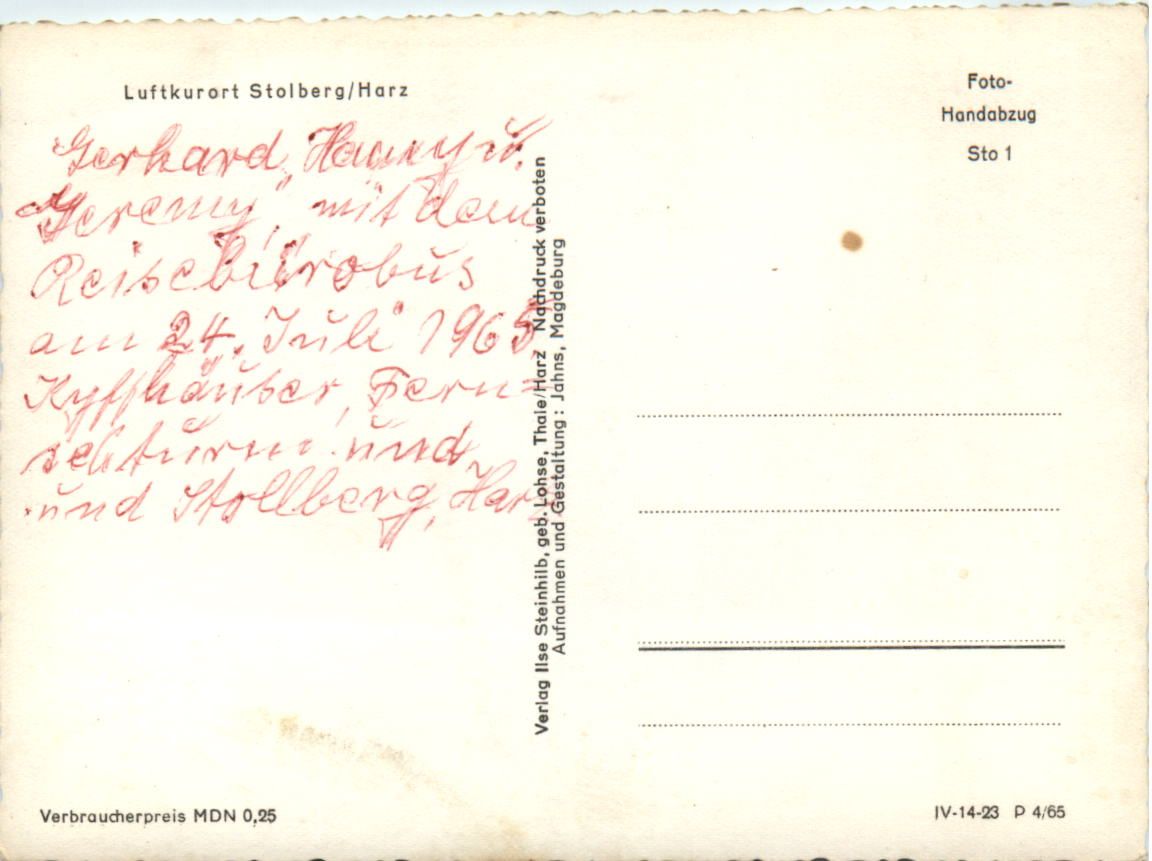 Luftkurort Stolberg/Harz
Gerhard, Hanny u.
"Jeremy" mit dem
Reisebürobus
am 24. Juli 1965
Kyffhäuser, Fern=
sehturm und
und Stollberg, Harz
Verlag Ilse Steinhilb, geb. Lohse, Thale/Harz Nachdruck verboten
Aufnahmen und Gestaltung: Jahns, Magdeburg
Foto-
Handabzug
Sto 1
Verbraucherpreis MDN 0,25
IV-14-23 P 4/65